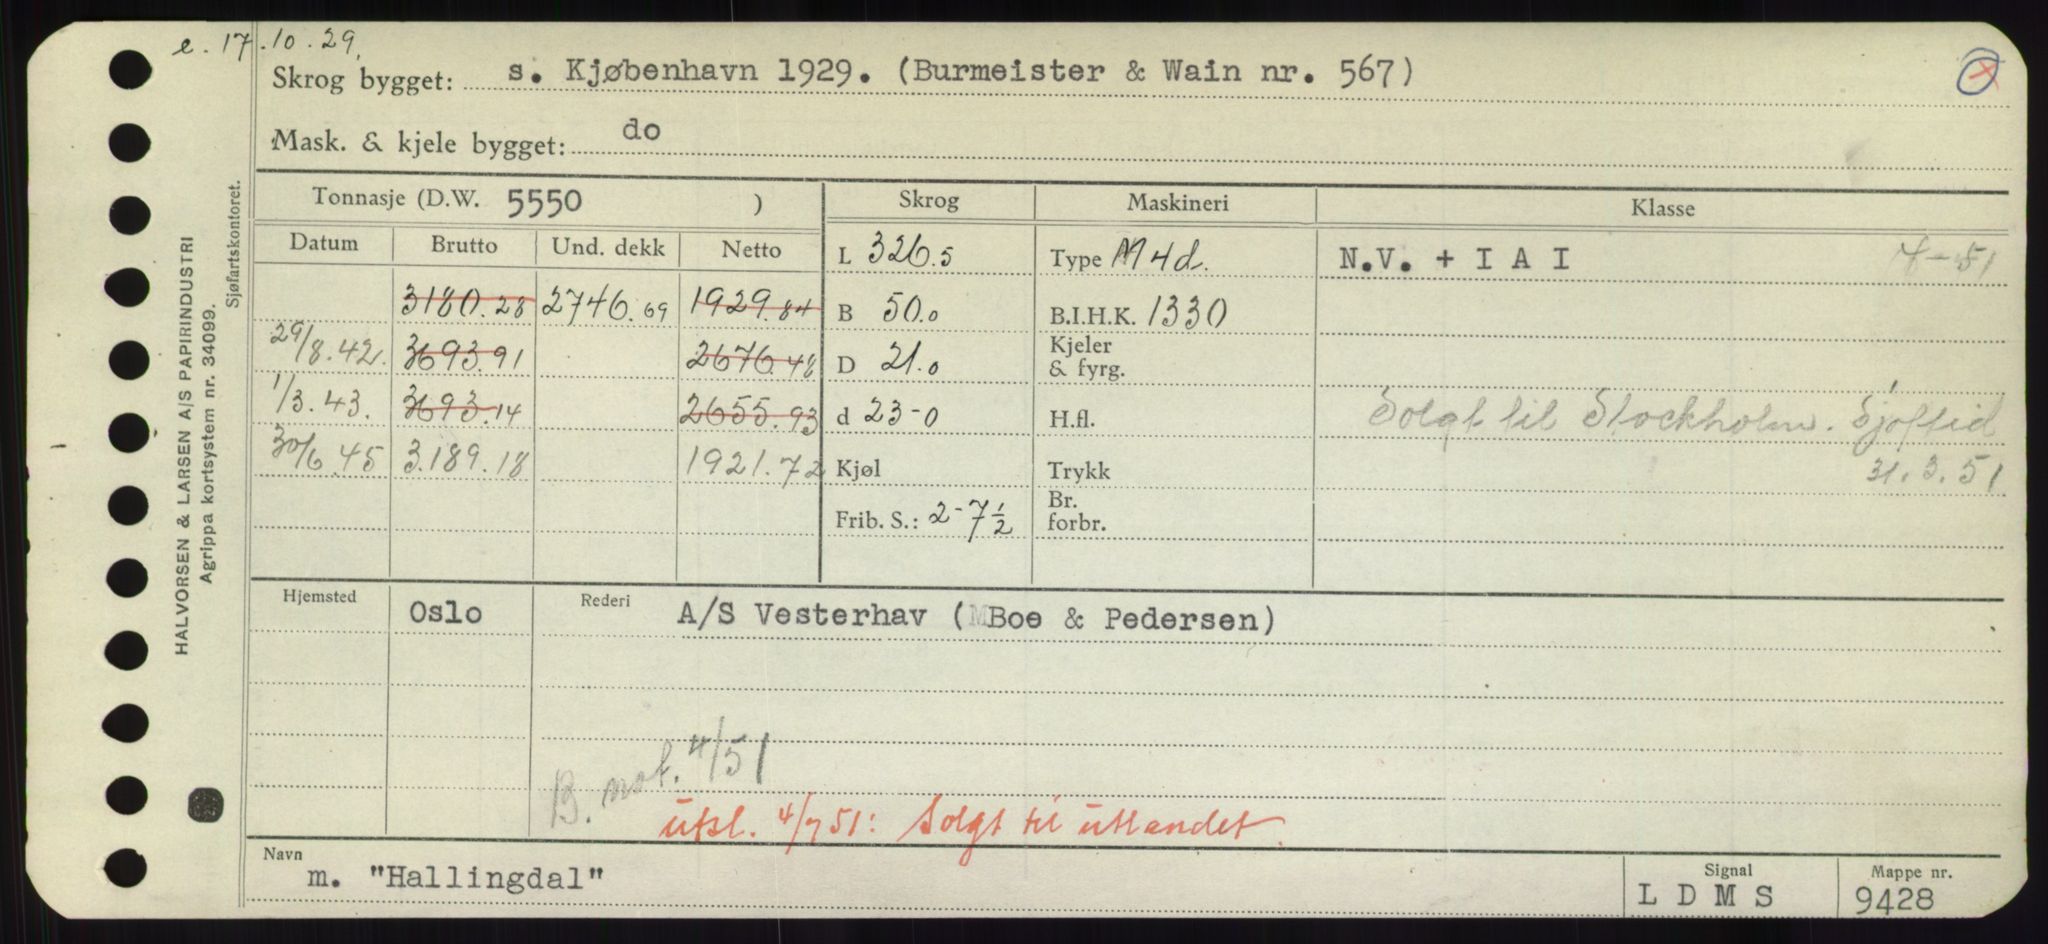 e. 17.10.29.
Skrog bygget: s. Kjøbenhavn 1929. (Burmeister & Wain nr. 567)
Mask. & kjele bygget: do
Tonnasje (D.W. 5550 ) Skrog Maskineri Klasse
Datum Brutto Und. dekk Netto L 326.5 Type M4d. N.V. + I A I 4-51
3180.28 2746.69 1929.84 B 50.0 B.I.H.K. 1330
29/8.42. 3693.91 2676.48 D 21.0 Kjeler & fyrg.
1/3.43. 3693.14 2655.93 d 23-0 H.fl. Solgt til Stockholm. Sjøftid
30/6.45 3.189.18 1921.72 Kjøl Trykk 31.3.51
Frib. S.: 2-7½ Br. forbr.
Hjemsted Oslo Rederi A/S Vesterhav (Boe & Pedersen)
B. not. 4/51
utsl. 4/7 51: Solgt til utlandet.
Navn m. "Hallingdal" Signal L D M S Mappe nr. 9428
HALVORSEN & LARSEN A/S PAPIRINDUSTRI
Agrippa kortsystem nr. 34099.
Sjøfartskontoret.